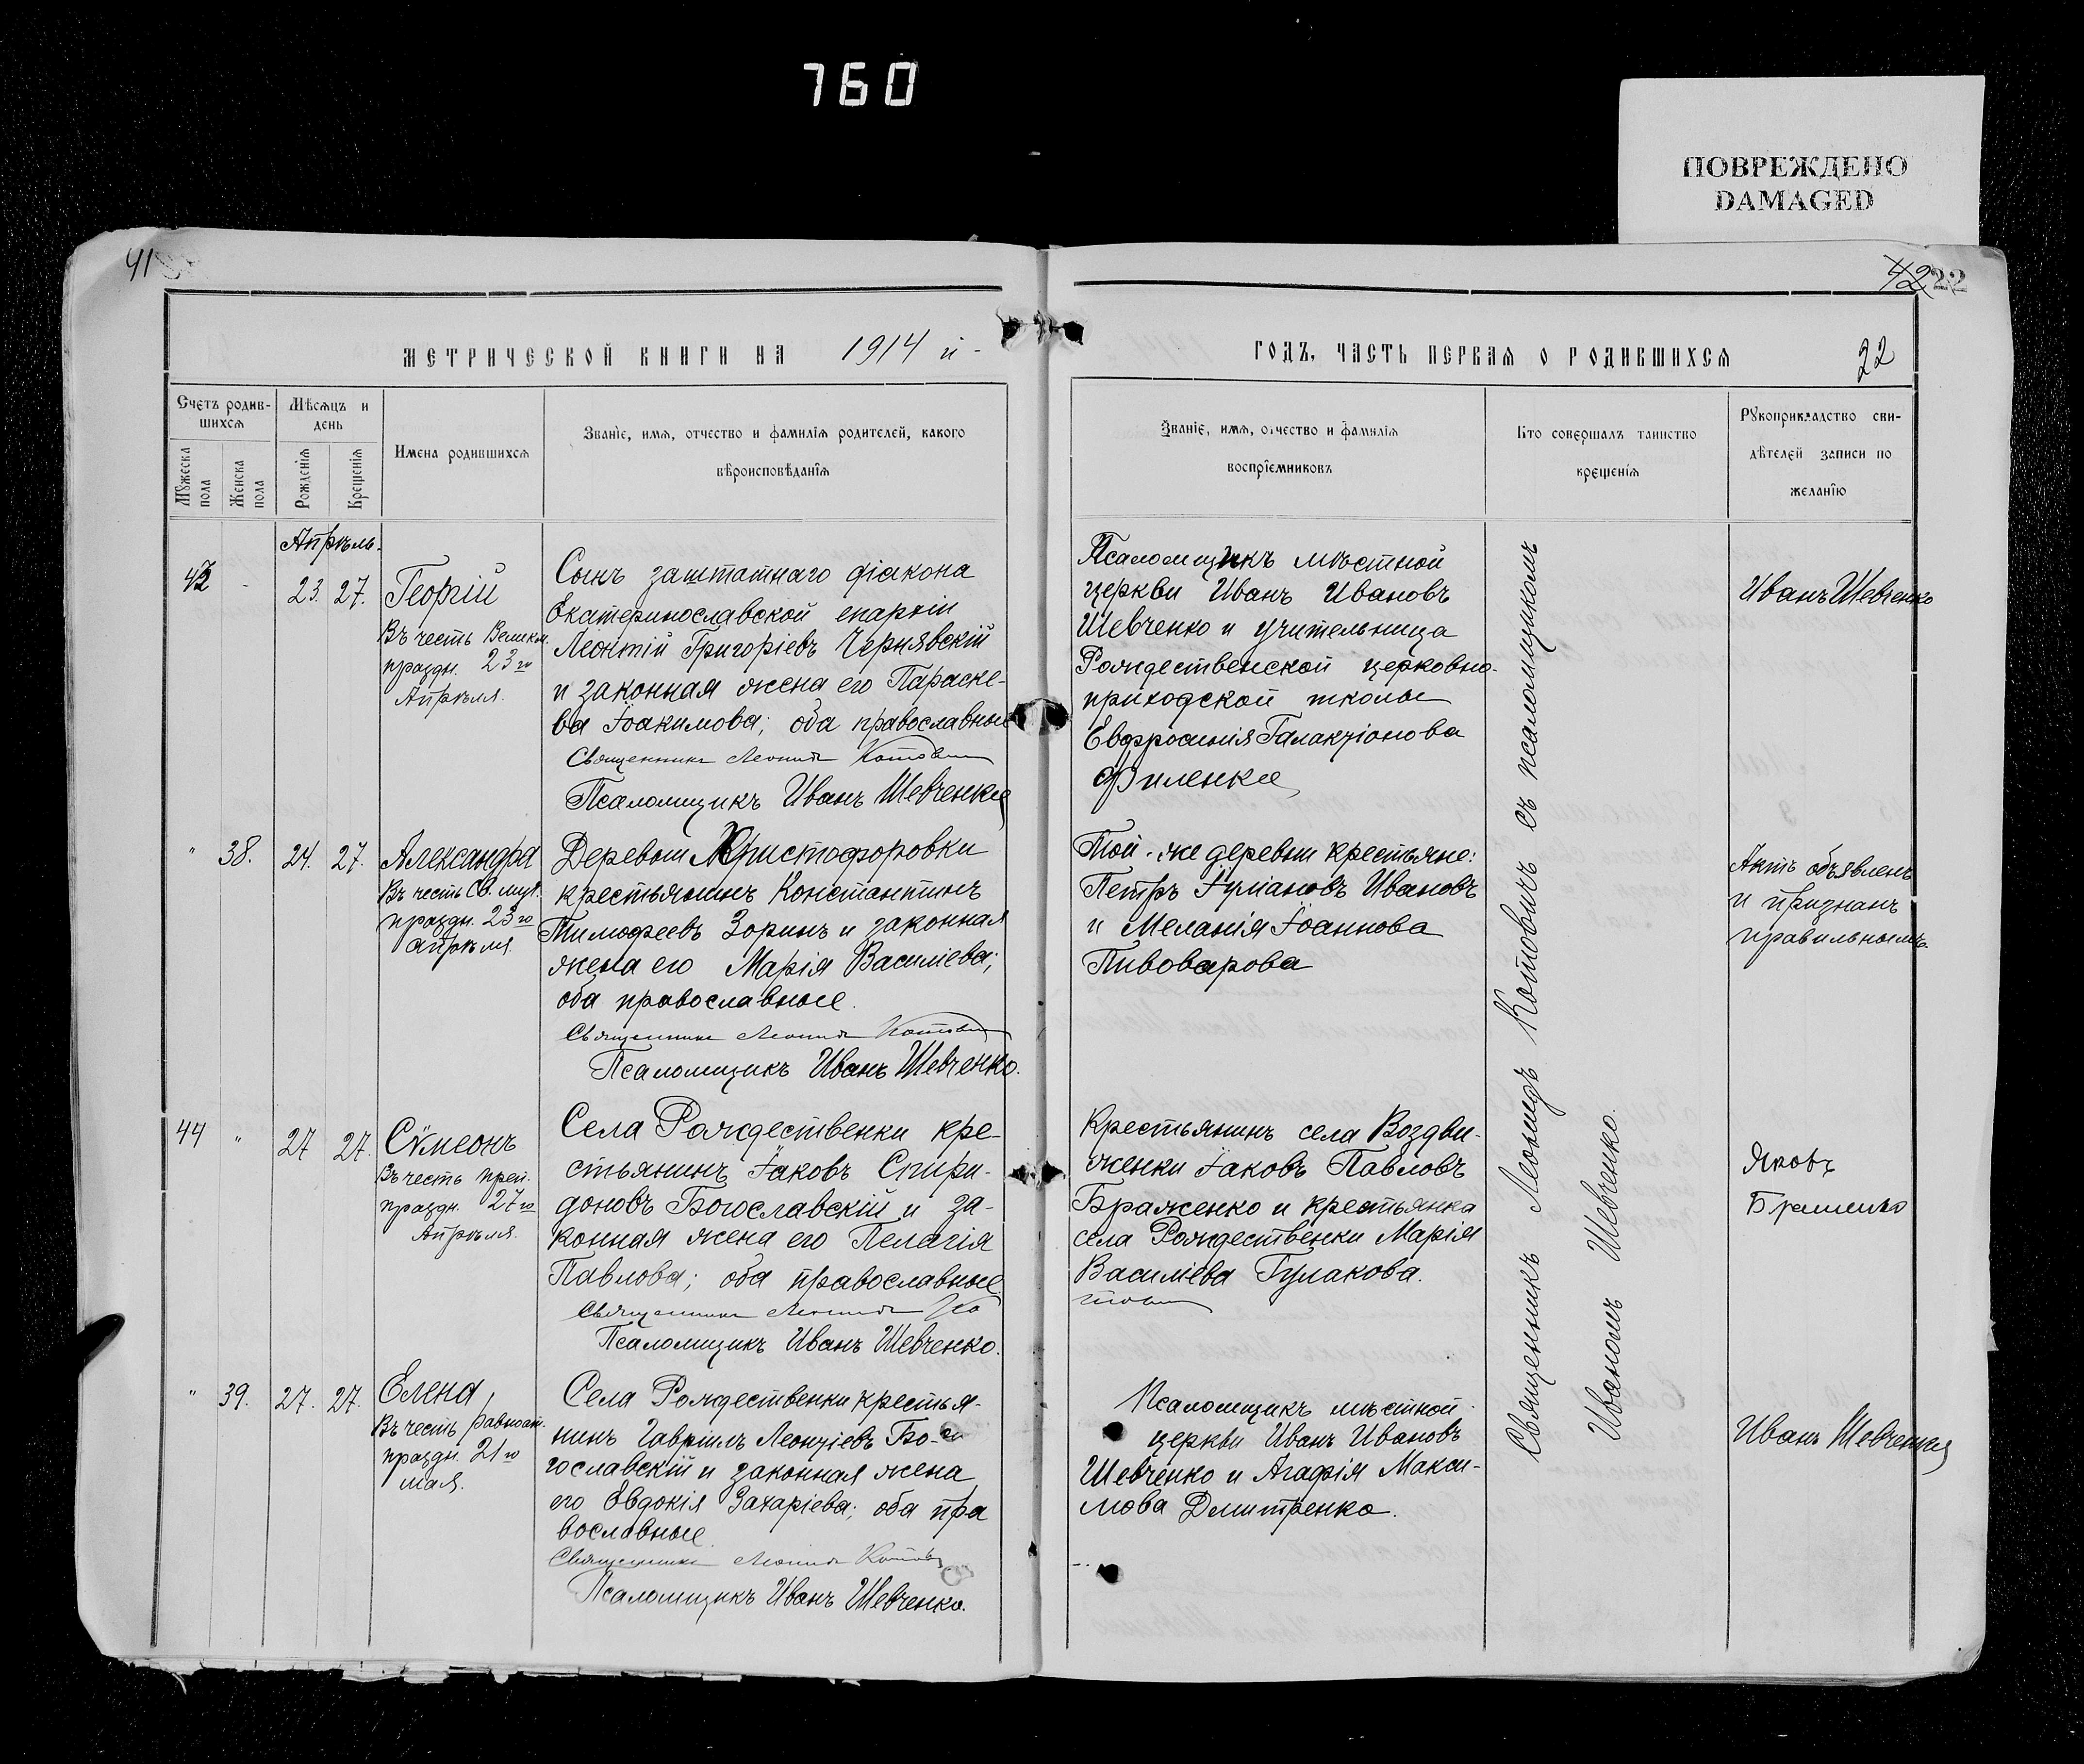 760
ПОВРЕЖДЕНО
DAMAGED
41
42 22
МЕТРИЧЕСКОЙ КНИГИ НА 1914 й
ГОДЪ, ЧАСТЬ ПЕРВАЯ О РОДИВШИХСЯ
22
Счетъ родив-
шихся
Мужеска пола
Женска пола
Мѣсяцъ и
день
Рожденія
Крещенія
Имена родившихся
Званіе, имя, отчество и фамилія родителей, какого
вѣроисповѣданія
Званіе, имя, отчество и фамилія
воспріемниковъ
Кто совершалъ таинство
крещенія
Рукоприкладство сви-
дѣтелей записи по
желанію
Апрѣль.
43 - 23. 27.
Георгій
Въ честь Великом.
праздн. 23го
Апрѣля.
Сынъ заштатнаго діакона
Екатеринославской епархіи
Леонтій Григоріевъ Чернявскій
и законная жена его Параске-
ва Іоакимова; оба православные
Священникъ Леонидъ Котовичъ
Псаломщикъ Иванъ Шевченко
Псаломщикъ мѣстной
церкви Иванъ Ивановъ
Шевченко и учительница
Рождественской церковно-
приходской школы
Евфросинія Галактіонова
Филенко
Иванъ Шевченко
" 38. 24. 27.
Александра
Въ честь Св. муч.
праздн. 23го
апрѣля
Деревни Христофоровки
крестьянинъ Константинъ
Тимофеевъ Зоринъ и законная
жена его Марія Василіева;
оба православные.
Священникъ Леонидъ Котовичъ
Псаломщикъ Иванъ Шевченко.
Той-же деревни крестьяне:
Петръ Іуліановъ Ивановъ
и Меланія Іоаннова
Пивоварова
Актъ объявленъ
и признанъ
правильнымъ
44 " 27 27.
Сѵмеонъ
Въ честь преп.
праздн. 27го
Апрѣля.
Села Рождественки кре-
стьянинъ Іаковъ Спири-
доновъ Богославскій и за-
конная жена его Пелагія
Павлова; оба православные.
Священникъ Леонидъ Ко
Псаломщикъ Иванъ Шевченко.
Крестьянинъ села Воздви-
женки Іаковъ Павловъ
Браженко и крестьянка
села Рождественки Марія
Василіева Гулакова.
товичъ
Яковъ
" 39. 27. 27.
Елена,
Въ честь равноап.
праздн. 21го
мая.
Села Рождественки крестья-
нинъ Гавріилъ Леонтіевъ Бо-
гославскій и законная жена
его Евдокія Захаріева; оба пра
вославные.
Священникъ Леонидъ Котовичъ
Псаломщикъ Иванъ Шевченко.
Псаломщикъ мѣстной
церкви Иванъ Ивановъ
Шевченко и Агафія Макси-
мова Дмитренко.
Иванъ Шевченко
Священникъ Леонидъ Котовичъ съ псаломщикомъ
Иваномъ Шевченко.